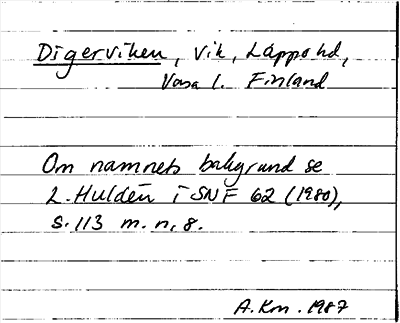 Digerviken, vik, Lappo hd,
Vasa l. Finland
Om namnets bakgrund se
L. Huldén i SNF 62 (1980),
s. 113 m. n. 8.
A. Km. 1987